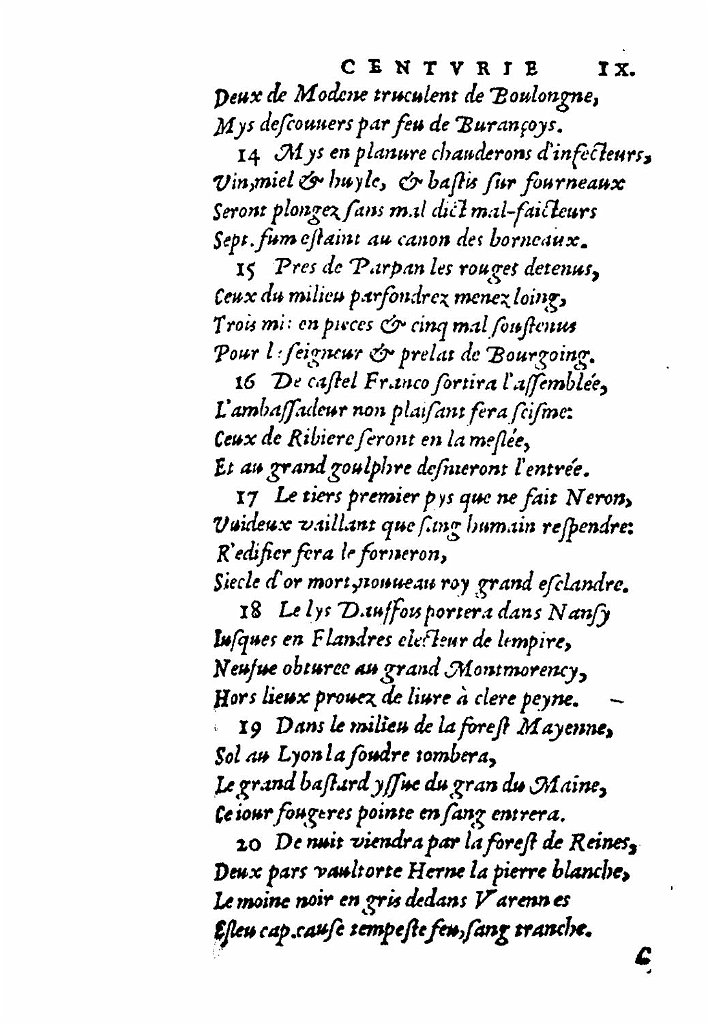 CENTVRIE IX.
Deux de Modene truculent de Boulongne,
Mys deſcouuers par feu de Burançoys.
14 Mys en planure chauderons d'infecteurs,
Vin, miel & huyle, & baſtis ſur fourneaux
Seront plongez ſans mal dict mal-faicteurs
Sept. fum eſtaint au canon des borneaux.
15 Pres de Parpan les rouges detenus,
Ceux du milieu parfondrez menez loing,
Trois mis en pieces & cinq mal ſouſtenus
Pour le ſeigneur & prelat de Bourgoing.
16 De caſtel Franco ſortira l'aſſemblée,
L'ambaſſadeur non plaiſant fera ſciſme:
Ceux de Ribiere ſeront en la meſlée,
Et au grand goulphre deſnieront l'entrée.
17 Le tiers premier pys que ne fait Neron,
Vuideux vaillant que ſang humain reſpendre:
R'edifier fera le forneron,
Siecle d'or mort, nouueau roy grand eſclandre.
18 Le lys Dauffois portera dans Nanſy
Iuſques en Flandres electeur de lempire,
Neufue obturee au grand Montmorency,
Hors lieux prouez de liure à clere peyne.
19 Dans le milieu de la foreſt Mayenne,
Sol au Lyon la foudre tombera,
Le grand baſtard yſſue du gran du Maine,
Ce iour fougeres pointe en ſang entrera.
20 De nuit viendra par la foreſt de Reines,
Deux pars vaultorte Herne la pierre blanche,
Le moine noir en gris dedans Varennes
Eſleu cap. cauſe tempeſte feu, ſang tranche.
C